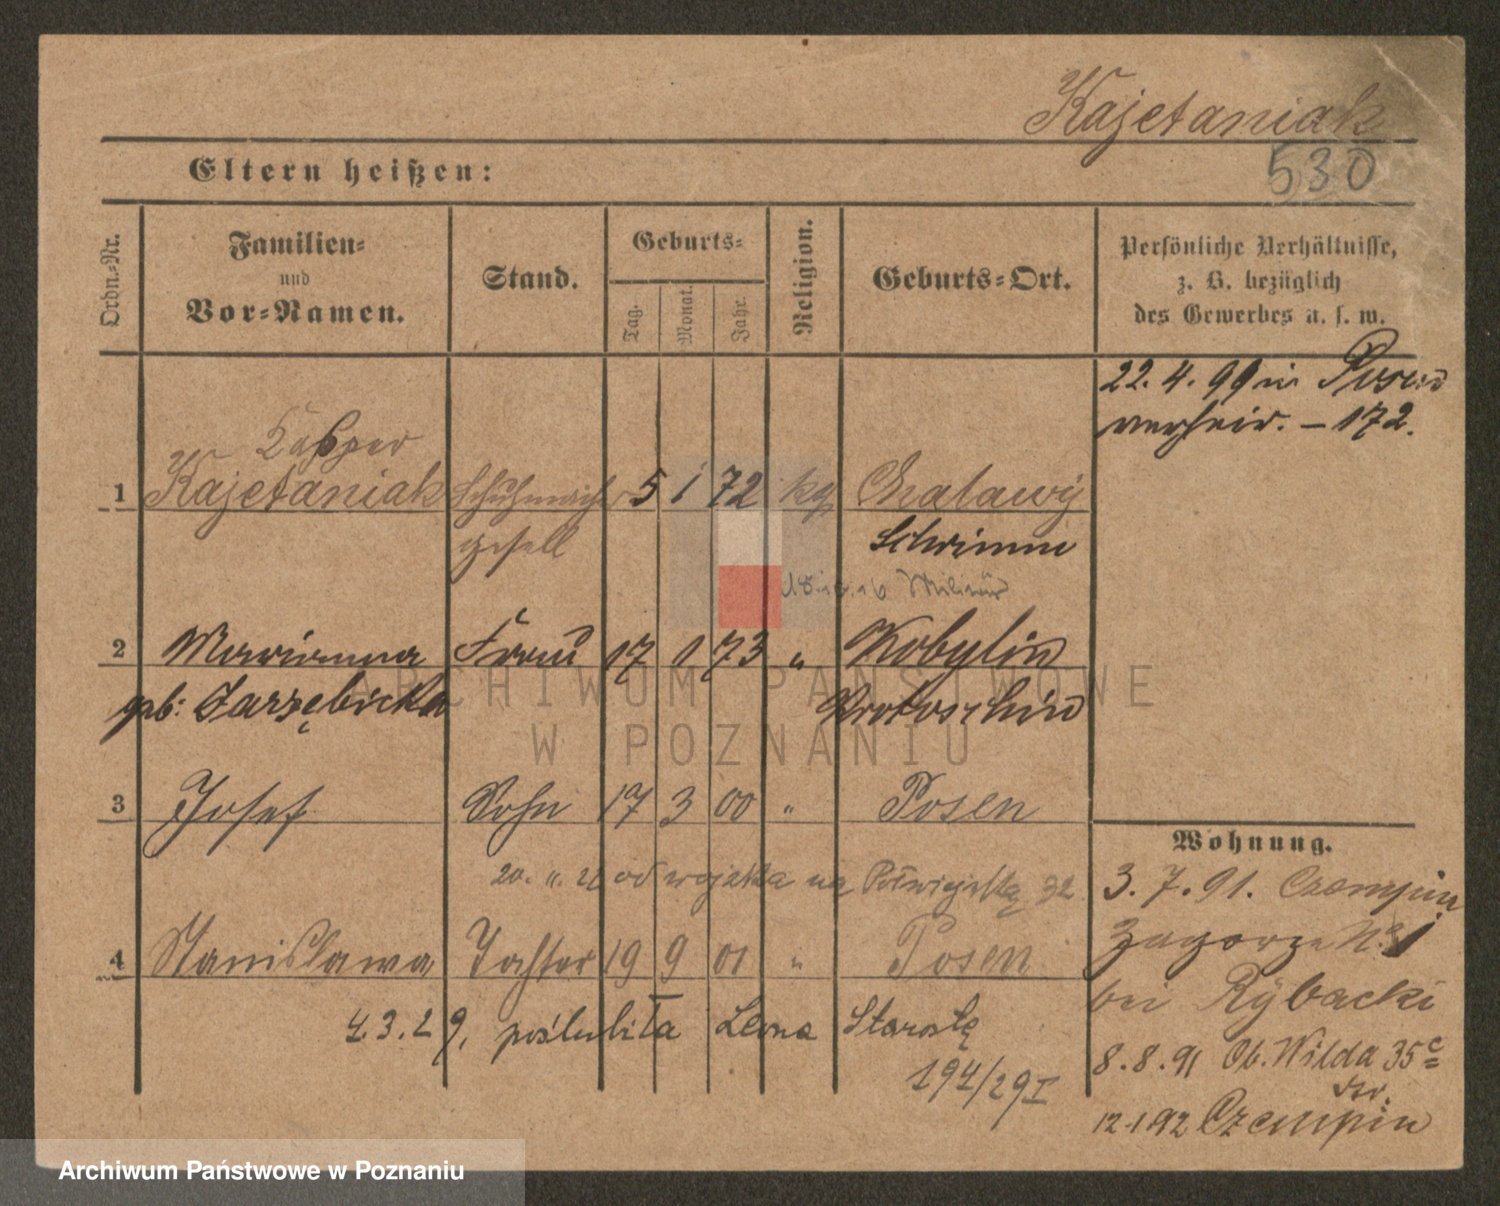 Kajetaniak
530
Eltern heißen:
Ordn.-Nr.
Familien-
und
Vor-Namen.
Stand.
Geburts-
Tag.
Monat.
Jahr.
Religion.
Geburts-Ort.
Persönliche Verhältnisse,
z. B. bezüglich
des Gewerbes u. s. w.
22. 4. 99 in Posen
verheir. – 172.
Kasper
1 Kajetaniak Schuhmacher 5 1 72 kg Chalawy
gesell Schrimm
Militär
2 Marianna Frau 17 1 73 " Kobylin
geb: Jarzębicka Krotoschin
ARCHIWUM PAŃSTWOWE
W POZNANIU
3 Josef Sohn 17 3 00 " Posen
Wohnung.
20. 11. 21 od wojska na 32
3. 7. 91. Czempin
4 Stanislawa Tochter 19 9 01 " Posen
Zagorze N. 1
bei Rybacki
4.3.29, poślubiła Leona Starostę
8.8.91 Ob. Wilda 35c
194/29 I
12.1.92 Czempin
Archiwum Państwowe w Poznaniu